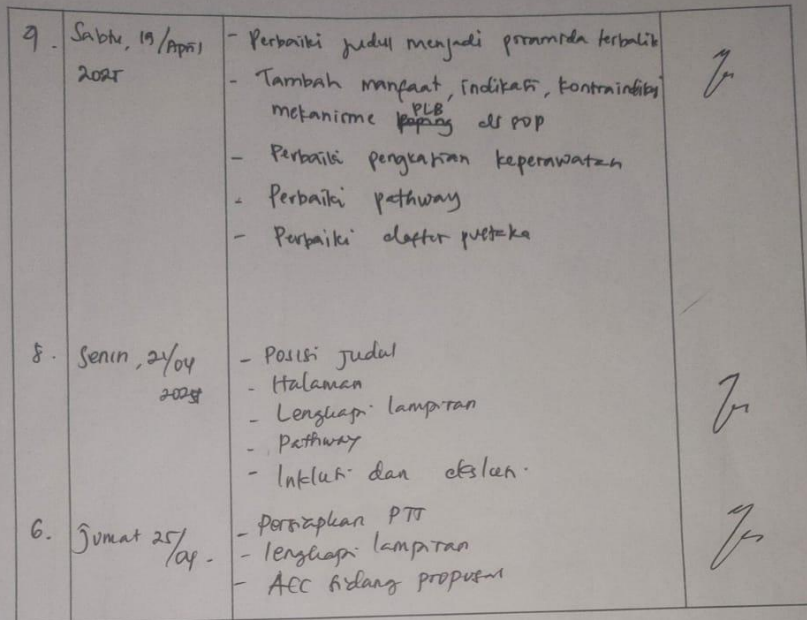 9. Sabtu, 19/April 2025
- Perbaiki judul menjadi piramida terbalik
- Tambah manfaat, indikasi, kontraindikasi
mekanisme PLB ds PDP
- Perbaiki pengkajian keperawatan
- Perbaiki pathway
- Perbaiki daftar pustaka
8. Senin, 21/04 2025
- Posisi judul
- Halaman
- Lengkapi lampiran
- Pathway
- Inklusi dan ekslusi.
6. Jumat 25/04.
- Persiapkan PTT
- lengkapi lampiran
- ACC sidang proposal